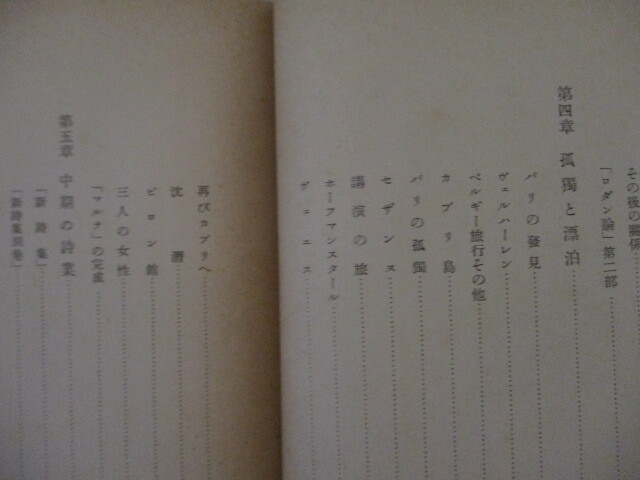 その後の關係
「ロダン論」第二部
第四章 孤獨と漂泊
パリの發見
ヴェルハーレン
ベルギー旅行その他
カプリ島
パリの孤獨
セザンヌ
講演の旅
ホーフマンスタール
ヴェニス
再びカプリへ
沈潛
ビロン館
三人の女性
「マルテ」の完成
第五章 中期の詩業
「新詩集」
「新詩集別卷」